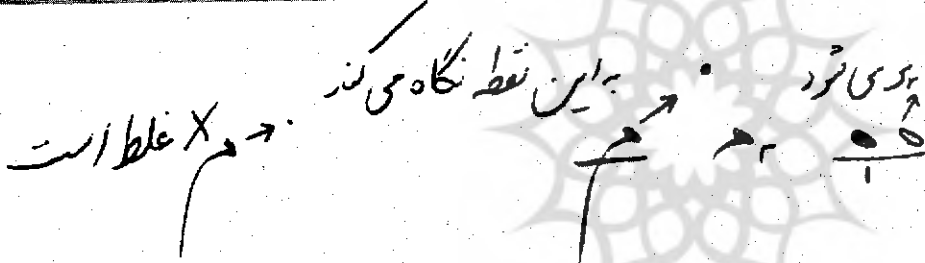 پر می شود
به این نقطه نگاه می کند
۱ ۲ م
م × غلط است